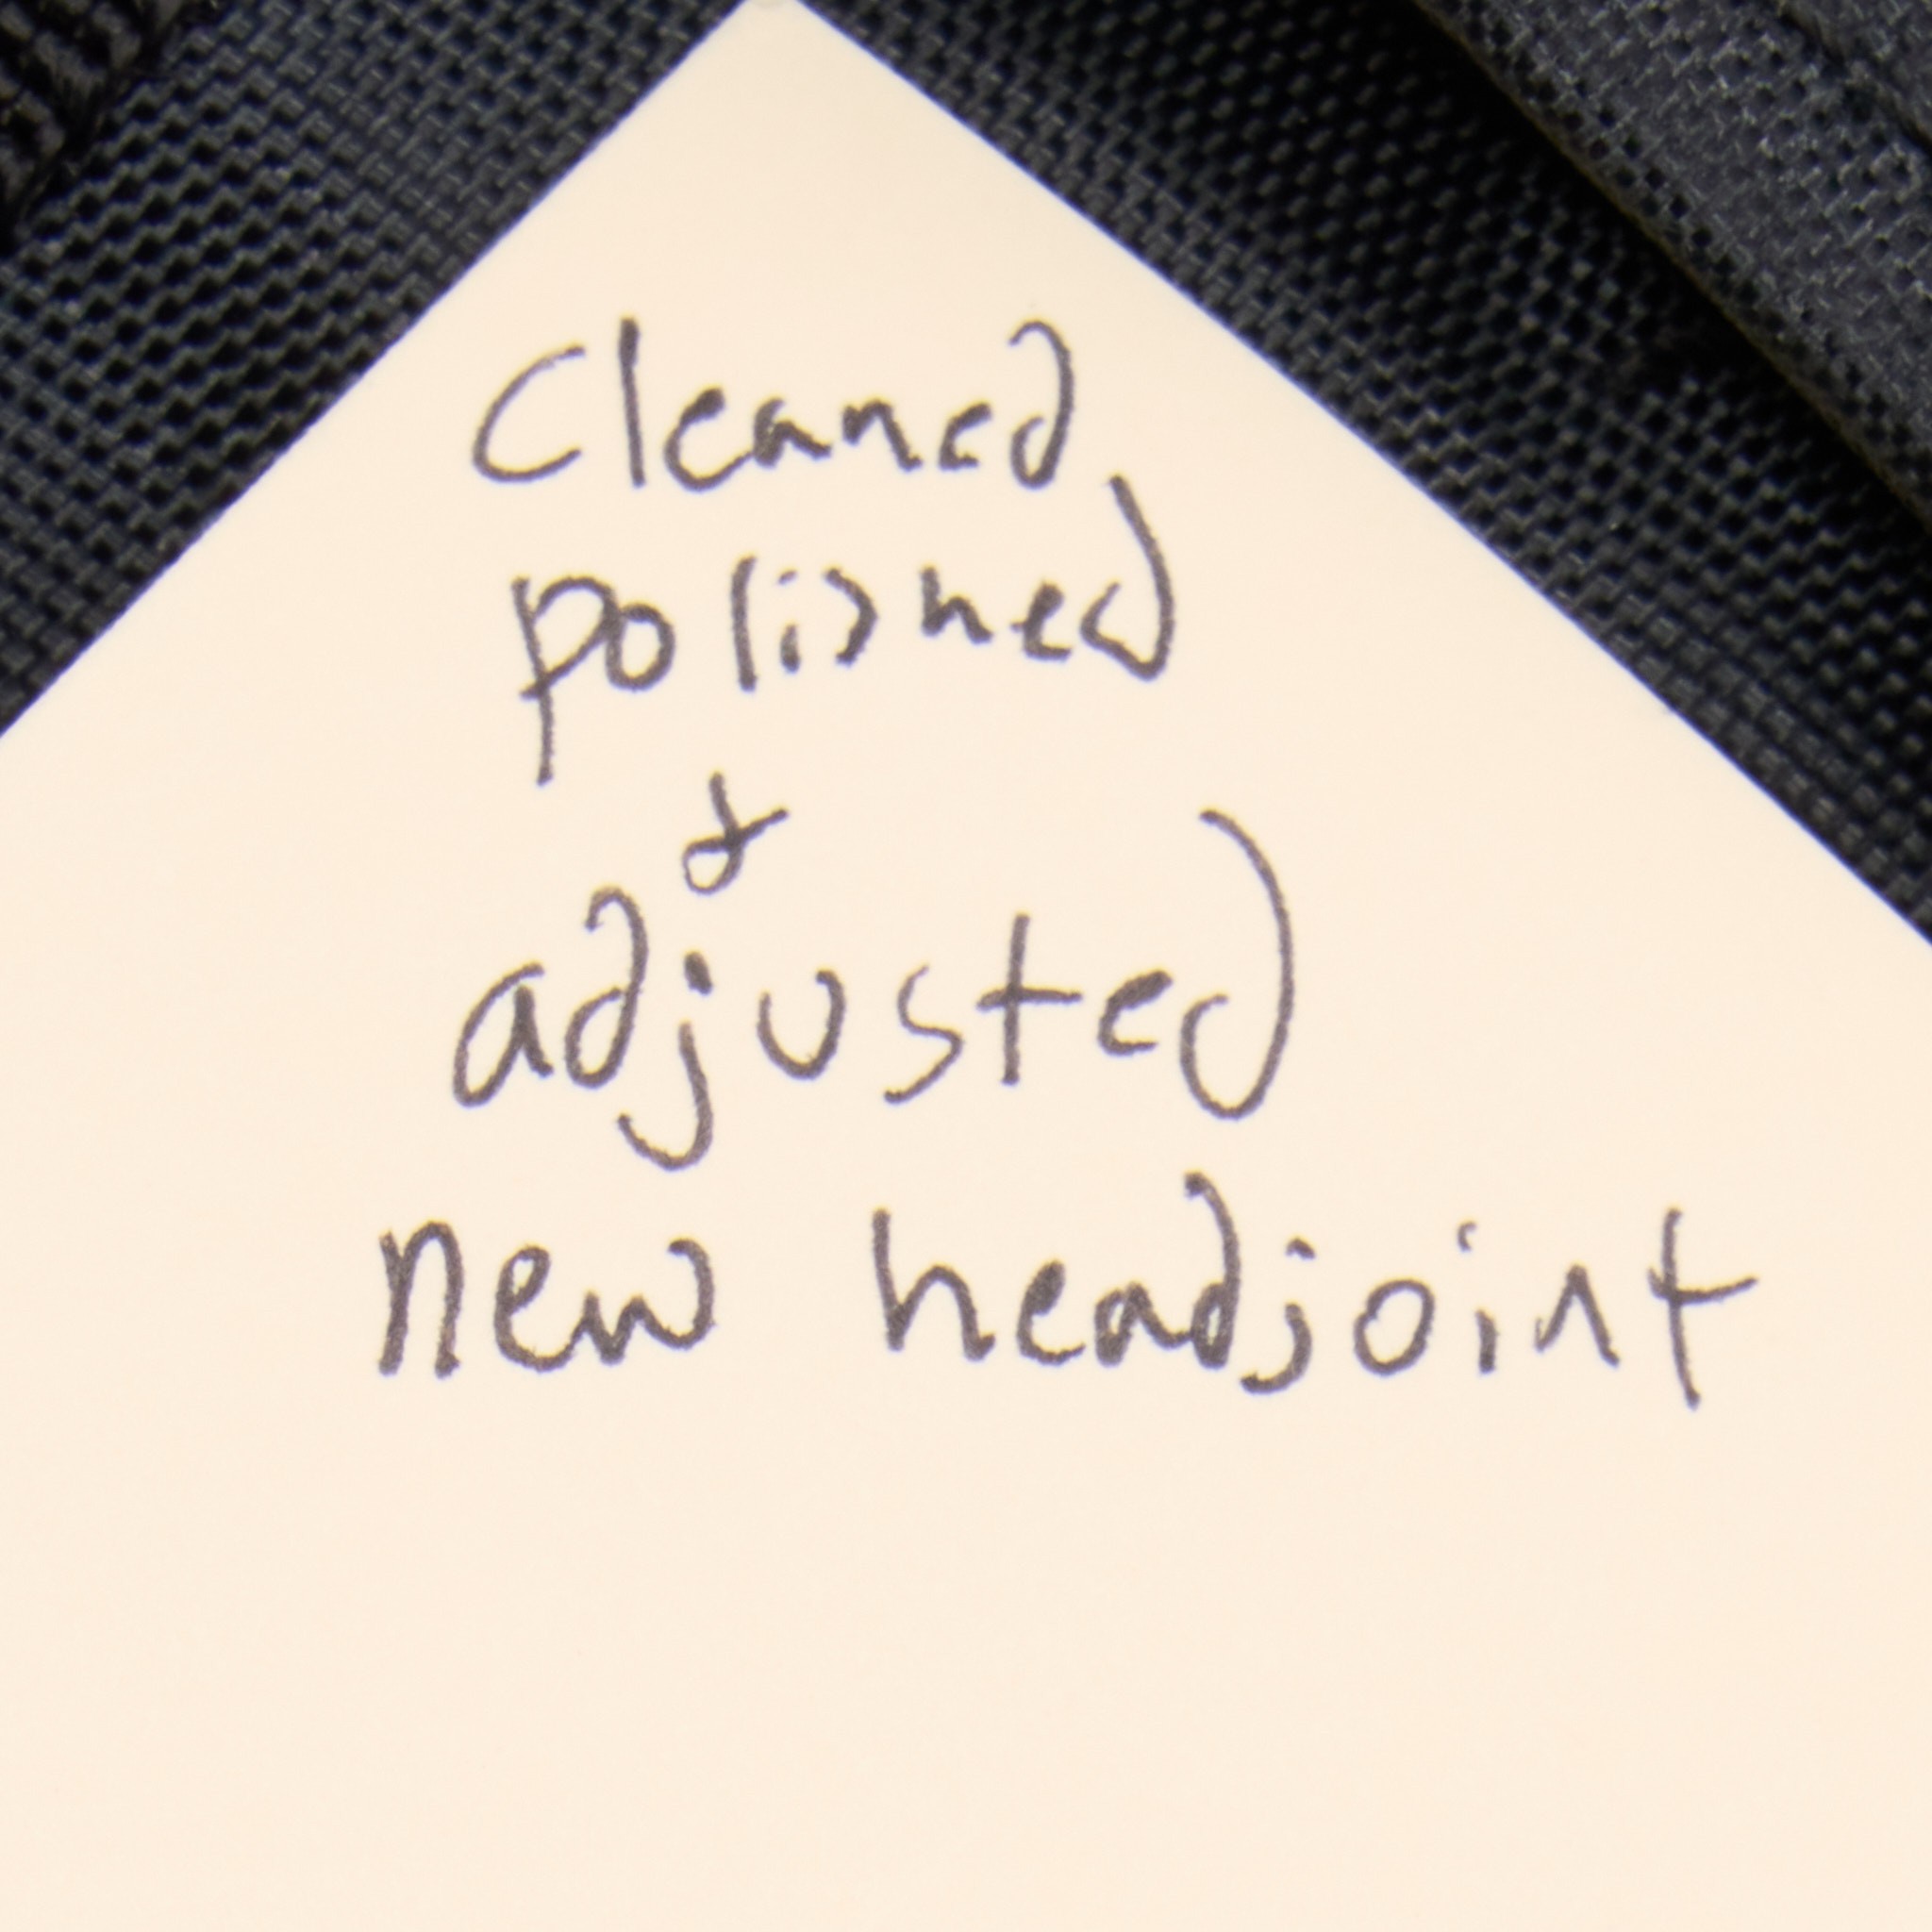 Cleaned
polished
&
adjusted
new headjoint